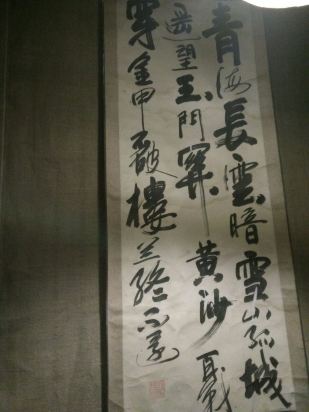 青海長雲暗雪山孤城
遥望玉門関黄沙百戰
穿金甲不破樓兰終不還